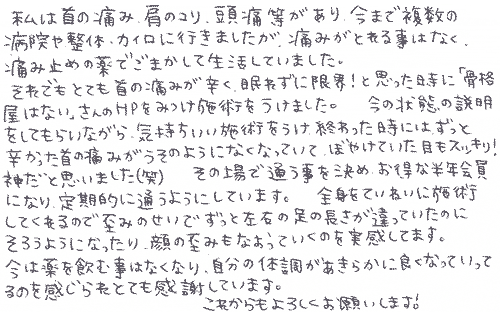 私は首の痛み、肩のコリ、頭痛等があり、今まで複数の
病院や整体・カイロに行きましたが、痛みがとれる事はなく、
痛み止めの薬でごまかして生活していました。
それでもとても首の痛みが辛く、眠れずに限界!と思った時に「骨格
屋はない」さんのHPをみつけ施術をうけました。 今の状態の説明
をしてもらいながら、気持ちいい施術をうけ、終わった時には、ずっと
辛かった首の痛みがうそのようになくなっていて、ぼやけていた目もスッキリ!
神だと思いました(笑) その場で通う事を決め、お得な半年会員
になり、定期的に通うようにしています。 全身をていねいに施術
してくれるので歪みのせいでずっと左右の足の長さが違っていたのに
そろうようになったり、顔の歪みもなおっていくのを実感してます。
今は薬を飲む事はなくなり、自分の体調があきらかに良くなっていって
るのを感じられとても感謝しています。
これからもよろしくお願いします!